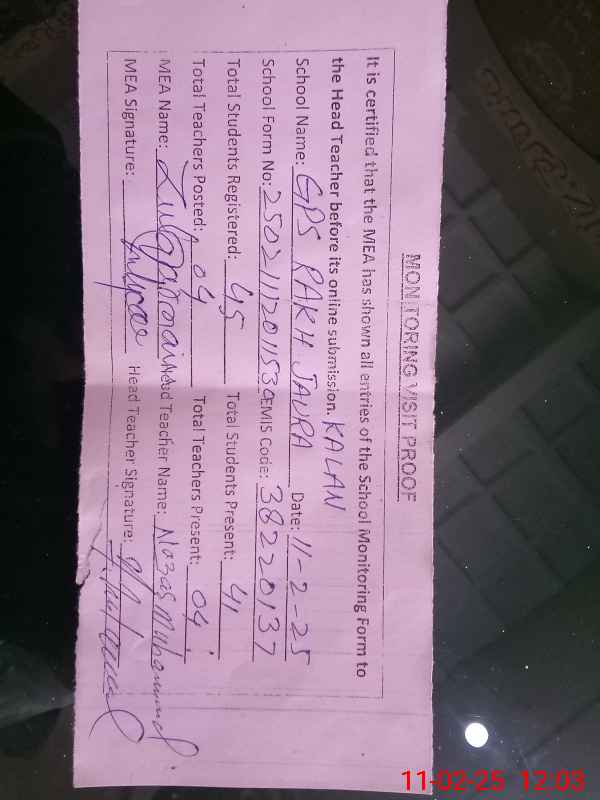 MONITORING VISIT PROOF
It is certified that the MEA has shown all entries of the School Monitoring Form to
the Head Teacher before its online submission. KALAN
School Name: GPS RAKH JAURA Date: 11-2-25
School Form No: EMIS Code: 38220137
Total Students Registered: 45 Total Students Present: 41
Total Teachers Posted: 04 Total Teachers Present: 04
MEA Name: Head Teacher Name: Muhammad
MEA Signature: Head Teacher Signature:
11-02-25 12:03